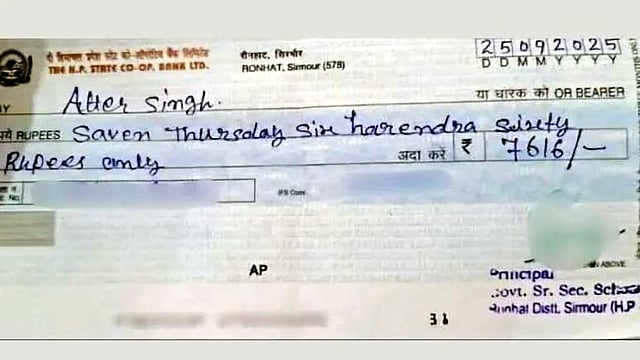 दी हिमाचल प्रदेश स्टेट को-ऑपरेटिव बैंक लिमिटेड
THE H.P. STATE CO-OP. BANK LTD.
रोनहाट, सिरमौर
RONHAT, Sirmour (578)
25092025
D D M M Y Y Y Y
AY Atter Singh. या धारक को OR BEARER
पये RUPEES Saven Thursday Six harendra Sixty
Rupees only अदा करें ₹ 7616/-
IFS Code
AP
N ABOVE
Principal
Govt. Sr. Sec. School
Ronhat Distt. Sirmour (H.P
31